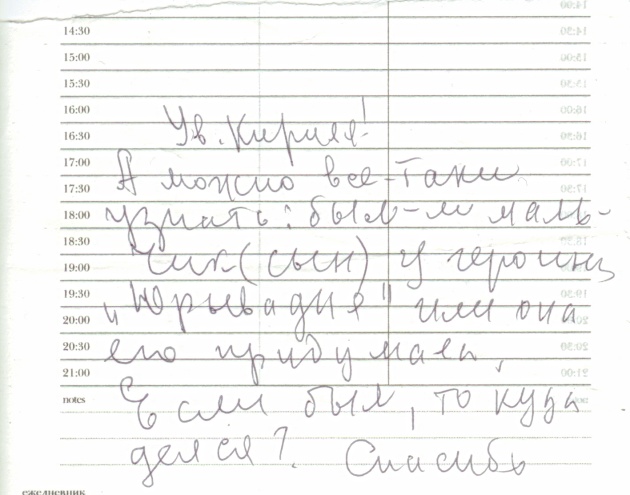 14:00
14:30 14:30
15:00 15:00
15:30 15:30
16:00 16:00
Ув. Кирилл!
16:30 16:30
17:00 А можно все-таки 17:00
17:30 17:30
18:00 узнать: был-ли маль-
18:30 чик (сын) у героини 18:30
19:00
19:30 „Юрьева дня" или она 19:30
20:00 20:00
20:30 его придумала, 20:30
21:00 21:00
notes Если был, то куда
делся? Спасибо
ежедневник